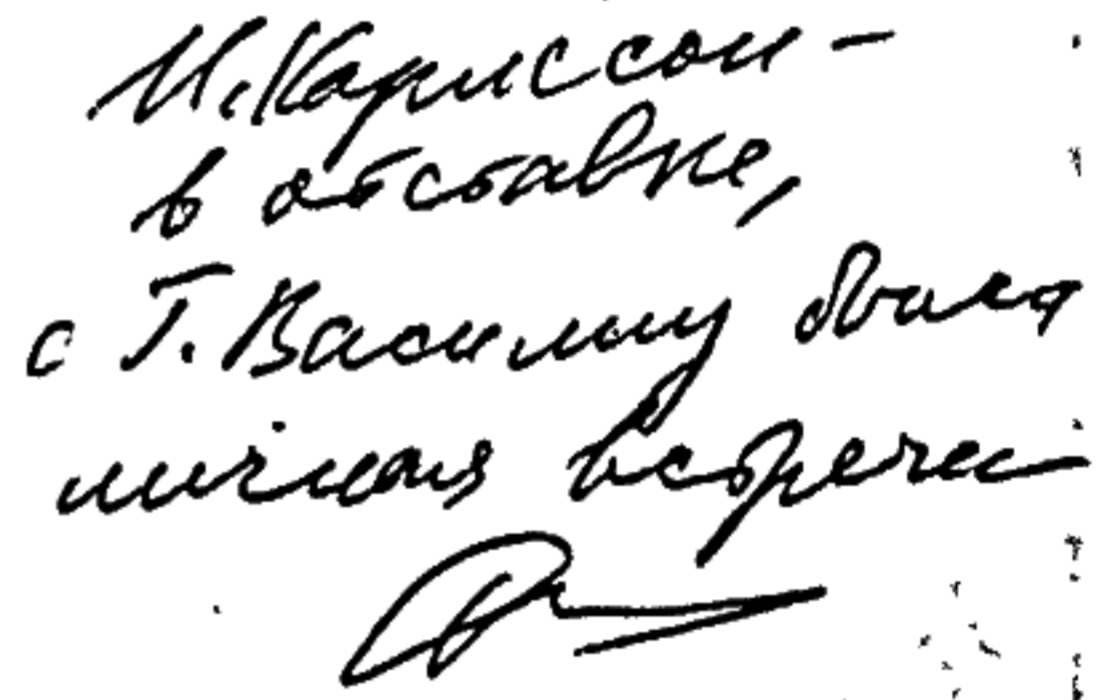 И. Карлссон –
в отставке,
с Г. Василиу была
личная встреча